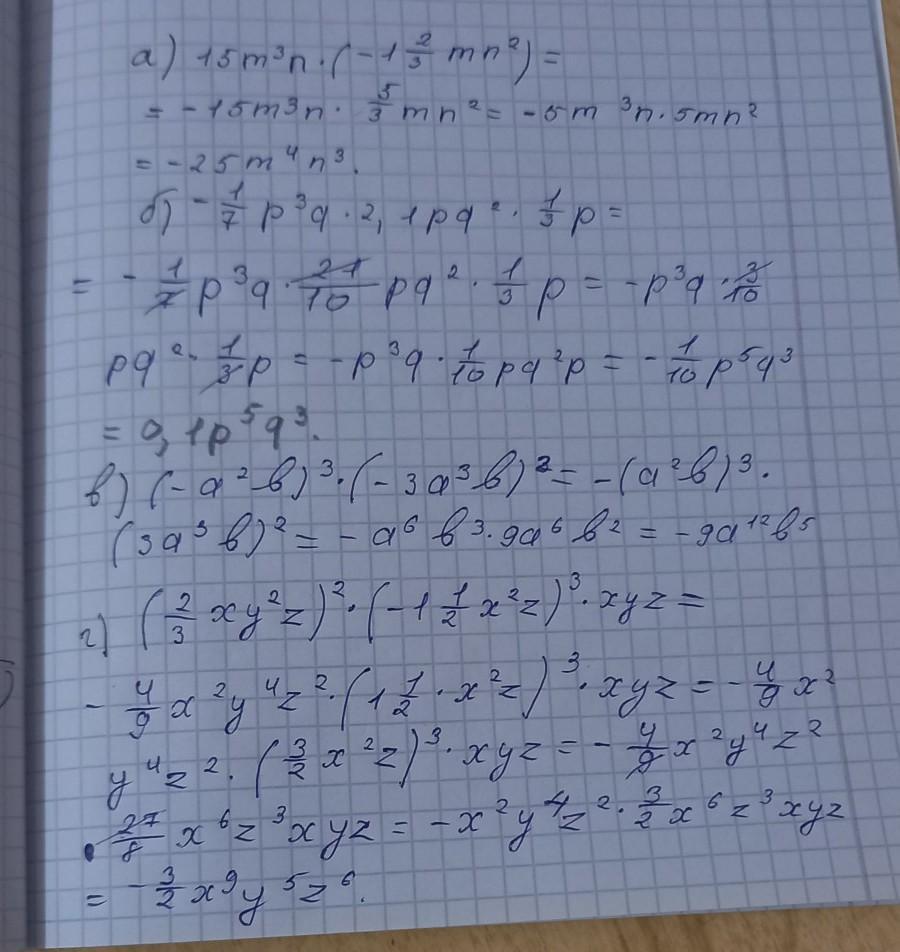 а) 15m³n·(-1 2/3 mn²)=
= -15m³n· 5/3 mn²= -5m ³n·5mn²
= -25m⁴n³.
б) - 1/7 p³q·2,1pq²· 1/3 p=
= - 1/7 p³q· 21/10 pq²· 1/3 p = -p³q· 3/10
pq²· 1/3 p = -p³q· 1/10 pq²p = - 1/10 p⁵q³
= 0,1p⁵q³.
в) (-a²b)³·(-3a³b)²= -(a²b)³·
(3a³b)²= -a⁶b³·9a⁶b² = -9a¹²b⁵
г) (2/3 xy²z)²·(-1 1/2 x²z)³·xyz=
- 4/9 x²y⁴z²·(1 1/2 ·x²z)³·xyz= - 4/9 x²
y⁴z²·(3/2 x²z)³·xyz= - 4/9 x²y⁴z²
· 27/8 x⁶z³xyz= -x²y⁴z²· 3/2 x⁶z³xyz
= - 3/2 x⁹y⁵z⁶.